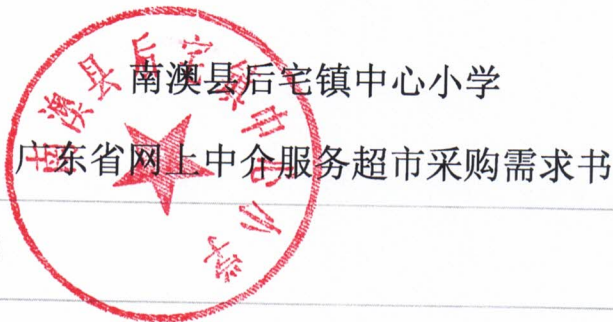 南澳县后宅镇中心小学
广东省网上中介服务超市采购需求书
南澳县后宅镇中心小学